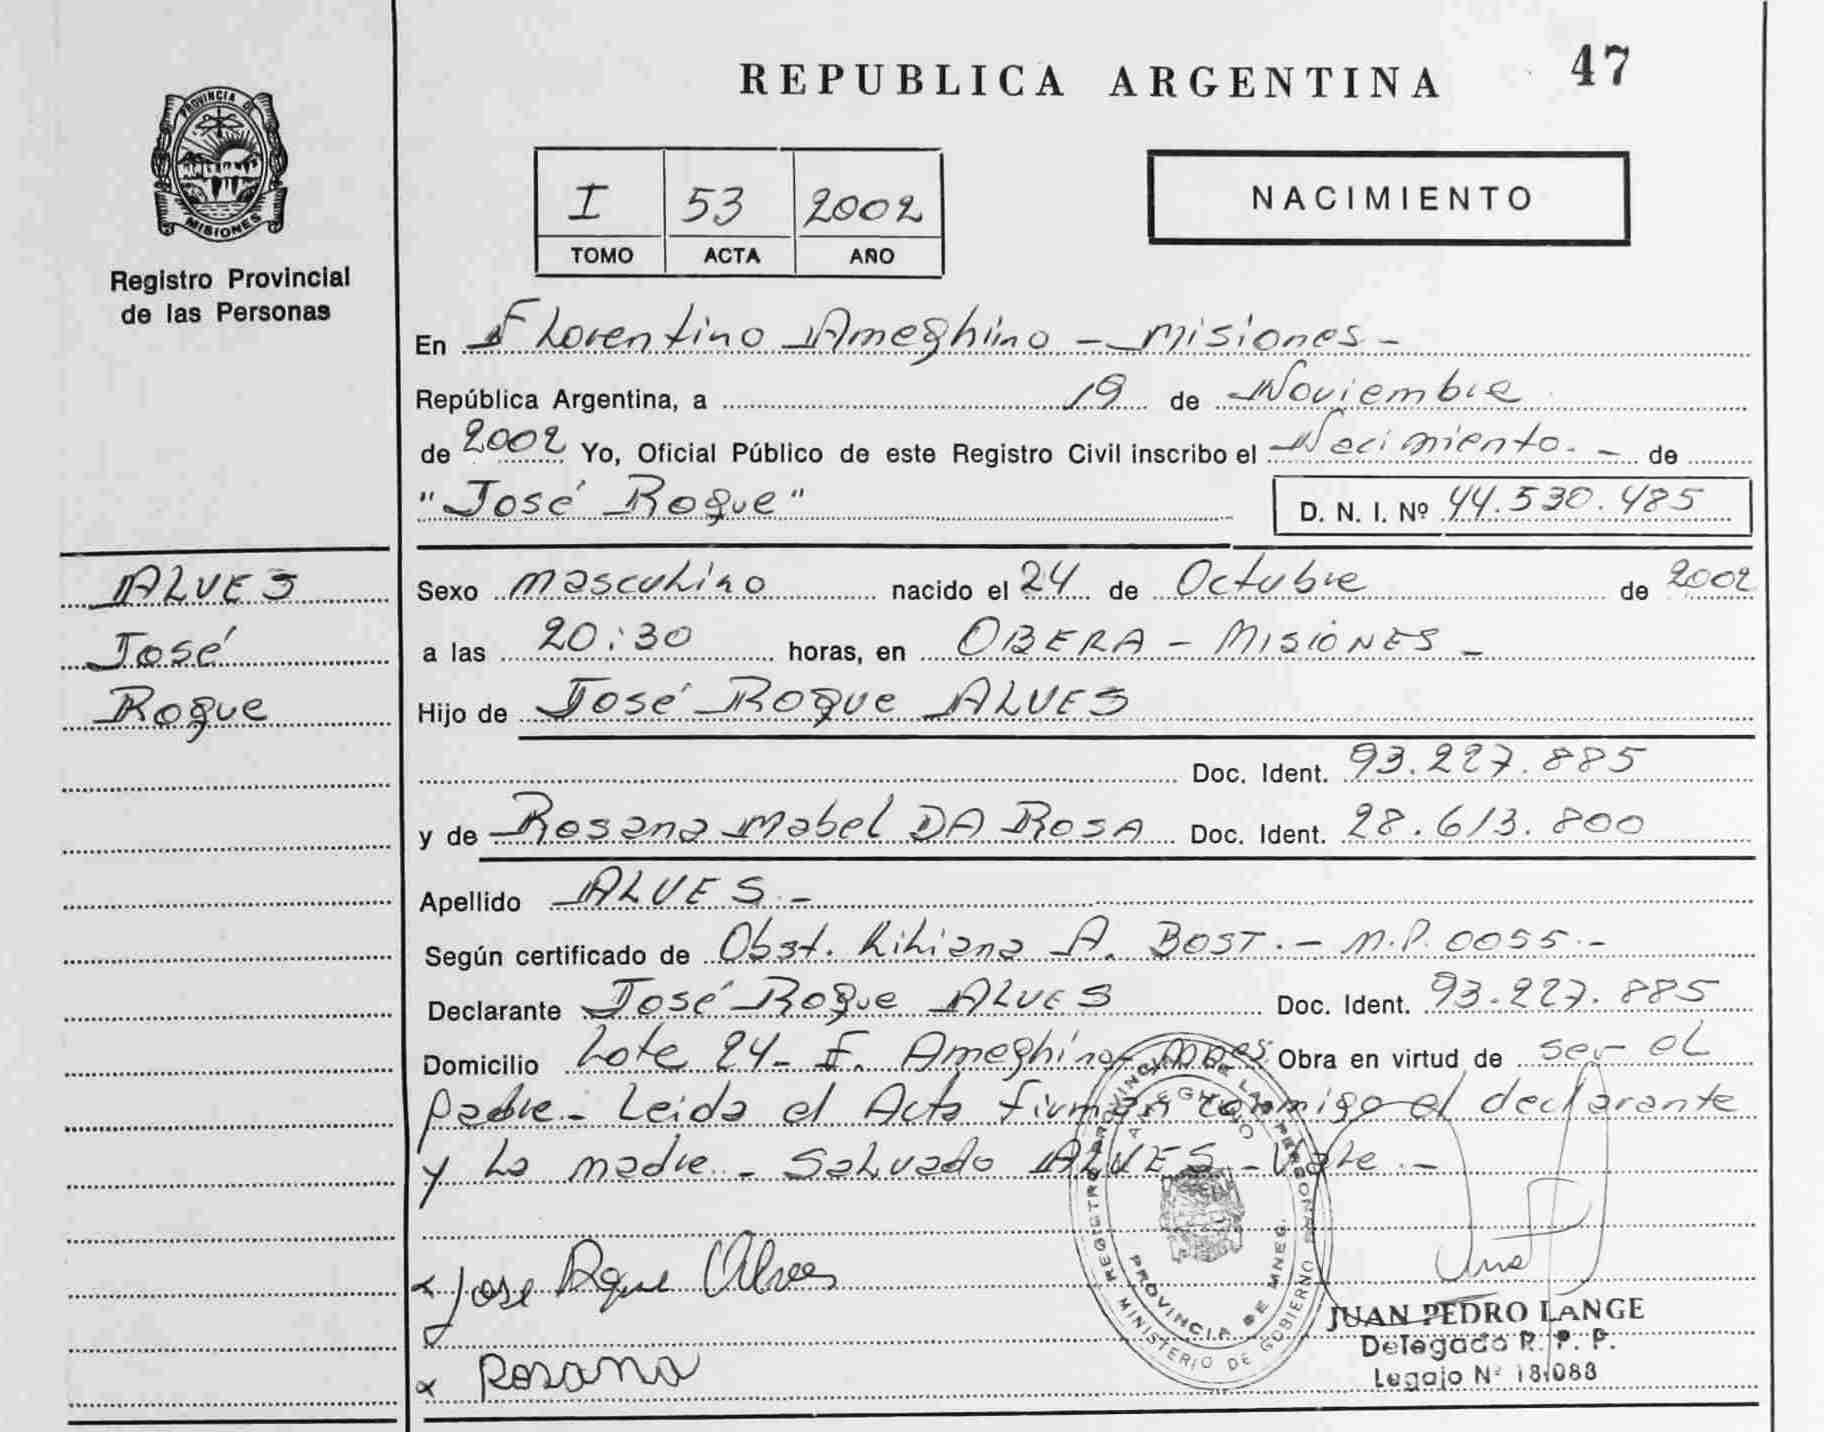 PROVINCIA DE
MISIONES
Registro Provincial
de las Personas
REPUBLICA ARGENTINA
47
I 53 2002
TOMO ACTA AÑO
NACIMIENTO
En Florentino Ameghino - Misiones -
República Argentina, a 19 de Noviembre
de 2002 Yo, Oficial Público de este Registro Civil inscribo el Nacimiento. - de
"José Roque" D. N. I. Nº 44.530.485
ALVES
José
Roque
Sexo masculino nacido el 24 de Octubre de 2002
a las 20:30 horas, en OBERA - MISIONES -
Hijo de José Roque ALVES
Doc. Ident. 93.227.885
y de Rosana Mabel DA ROSA Doc. Ident. 28.613.800
Apellido ALVES -
Según certificado de Obst. Liliana A. BOST. - M.P. 0055 -
Declarante José Roque ALVES Doc. Ident. 93.227.885
Domicilio Lote 24 - F. Ameghino - Mnes Obra en virtud de ser el
padre - Leida el Acta firman conmigo el declarante
y la madre - Salvado ALVES - Vale. -
Jose Roque Alves
Rosana
REGISTRO PROVINCIAL DE LAS PERSONAS
MINISTERIO DE GOBIERNO
PROVINCIA DE MNES.
JUAN PEDRO LANGE
Delegado R. P. P.
Legajo Nº 18.088